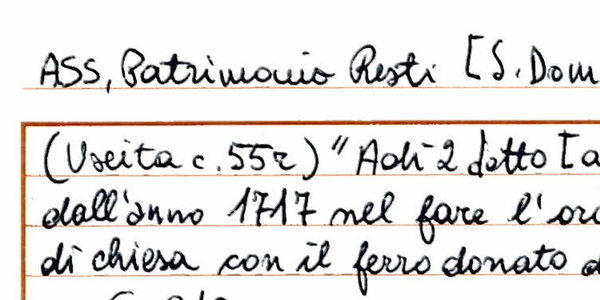 ASS, Patrimonio Resti [S. Dom
(Uscita c. 55r) "Adì 2 detto [a
dall'anno 1717 nel fare l'or
di chiesa con il ferro donato d